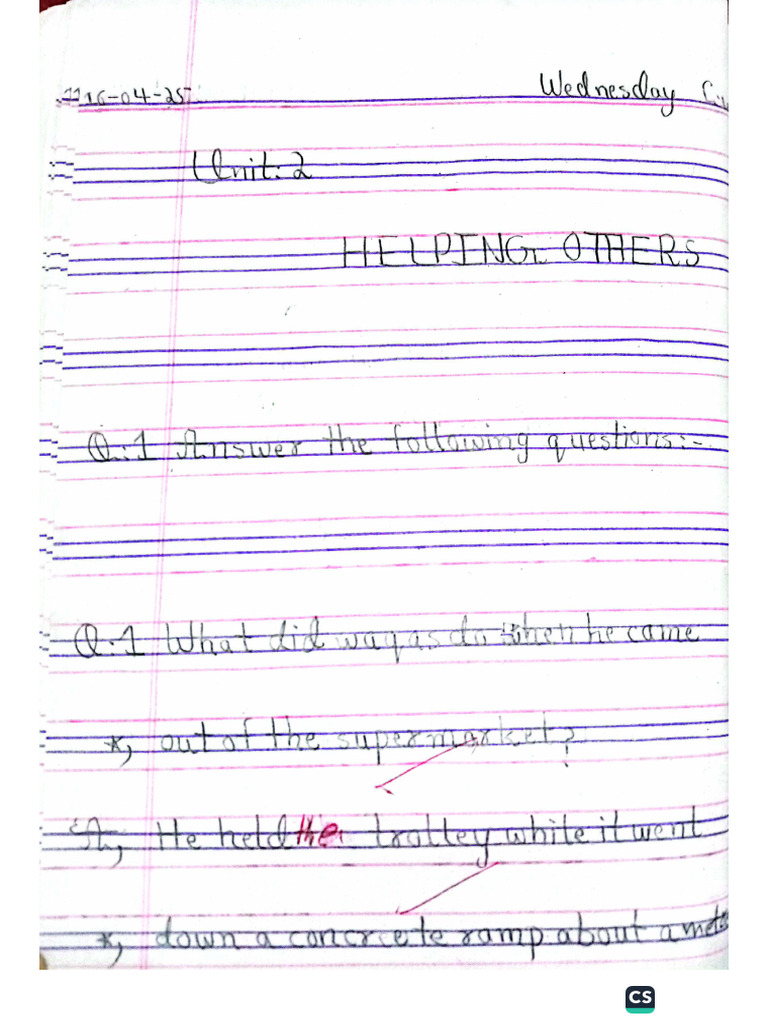 16-04-25 Wednesday
Unit:2
HELPING OTHERS
Q:1 Answer the following questions:-
Q:1 What did waqas do when he came
*, out of the supermarket?
A, He held the trolley while it went
*, down a concrete ramp about a
CS